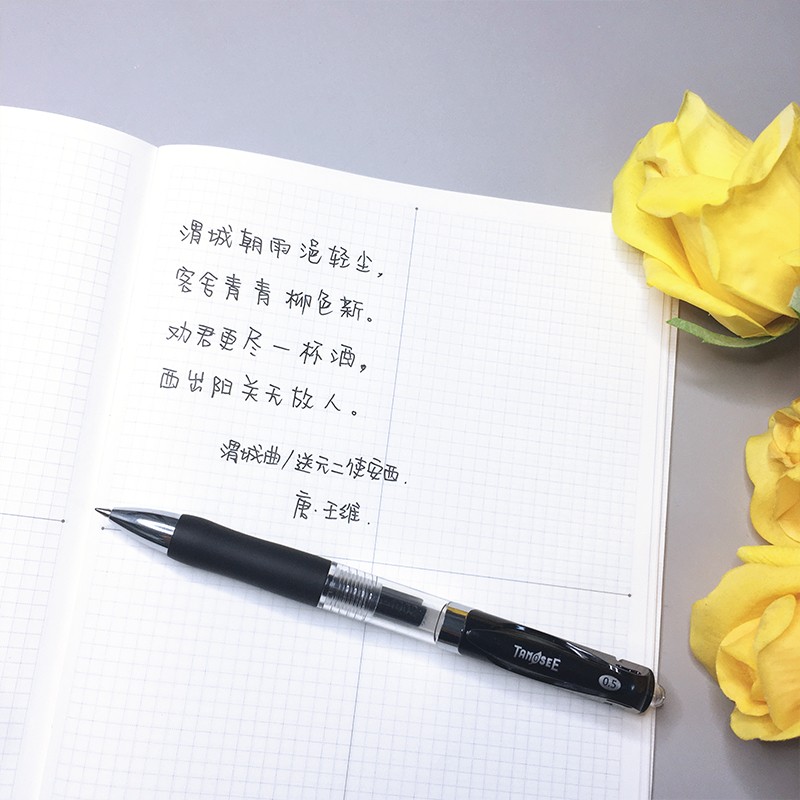 渭城朝雨浥轻尘，
客舍青青柳色新。
劝君更尽一杯酒，
西出阳关无故人。
渭城曲/送元二使安西.
唐·王维.
TANOSEE
0.5